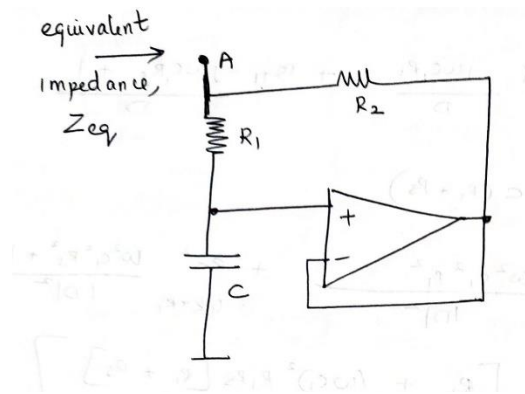 equivalent
impedance,
Zeq
A
R2
R1
+
-
C